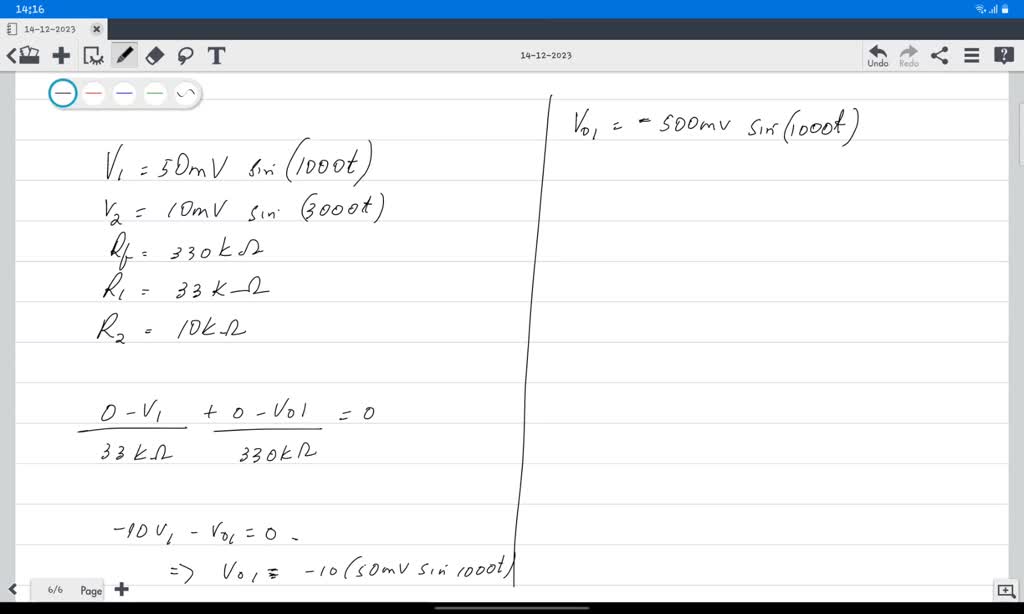 14:16
14-12-2023
T
14-12-2023
Undo
Redo
V₁ = 50mV sin (1000t)
V₂ = 10mV sin (3000t)
Rf = 330kΩ
R₁ = 33kΩ
R₂ = 10kΩ
0 - V₁ / 33kΩ + 0 - V01 / 330kΩ = 0
-10V₁ - V₀₁ = 0
=> V₀₁ = -10(50mV sin 1000t)
V₀₁ = -500mv sin(1000t)
6/6 Page